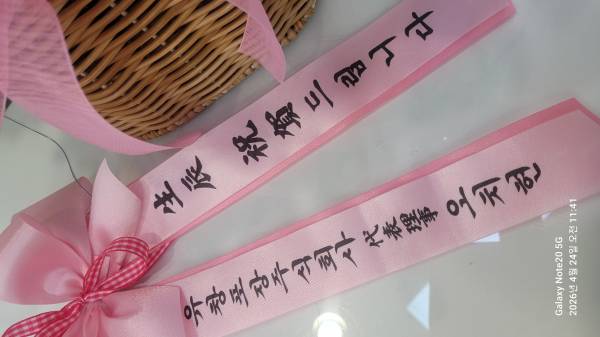 生辰 祝賀드립니다
유창포장주식회사 代表理事 오치현
Galaxy Note20 5G
2026년 4월 24일 오전 11:41